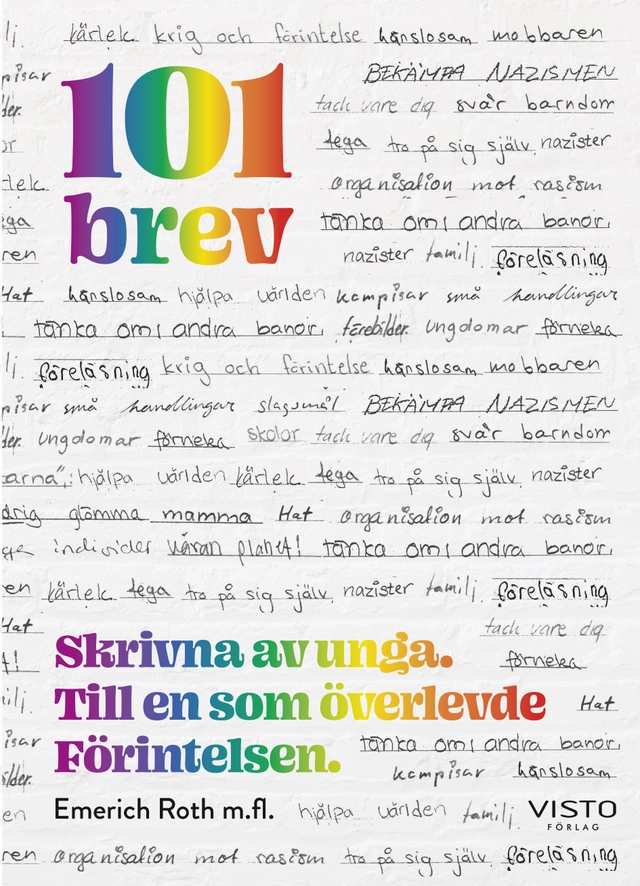 lj. kärlek krig och förintelse hänslosam mobbaren
pisar BEKÄMPA NAZISMEN
101
der. tack vare dig svår barndom
or tega tro på sig själv nazister
rlek organisation mot rasism
brev
ga tänka om i andra banor.
ren nazister familj föreläsning
Hat hänslosam hjälpa världen kompisar små handlingar
tänka om i andra banor. förebilder ungdomar förneka
lj. föreläsning krig och förintelse hänslosam mobbaren
pisar små handlingar slagsmål BEKÄMPA NAZISMEN
der. ungdomar förneka skolor tack vare dig svår barndom
arna", hjälpa världen kärlek tega tro på sig själv nazister
drig glömma mamma Hat organisation mot rasism
individer våran planet! tänka om i andra banor.
en kärlek tega tro på sig själv nazister familj föreläsning
Hat tack vare dig
Skrivna av unga.
t! förneka
Till en som överlevde
ilj. Hat
isar tänka om i andra banor.
Förintelsen.
ilder. kompisar hänslosam
Emerich Roth m.fl.
en hjälpa världen familj.
VISTO
FÖRLAG
ren organisation mot rasism tro på sig själv föreläsning